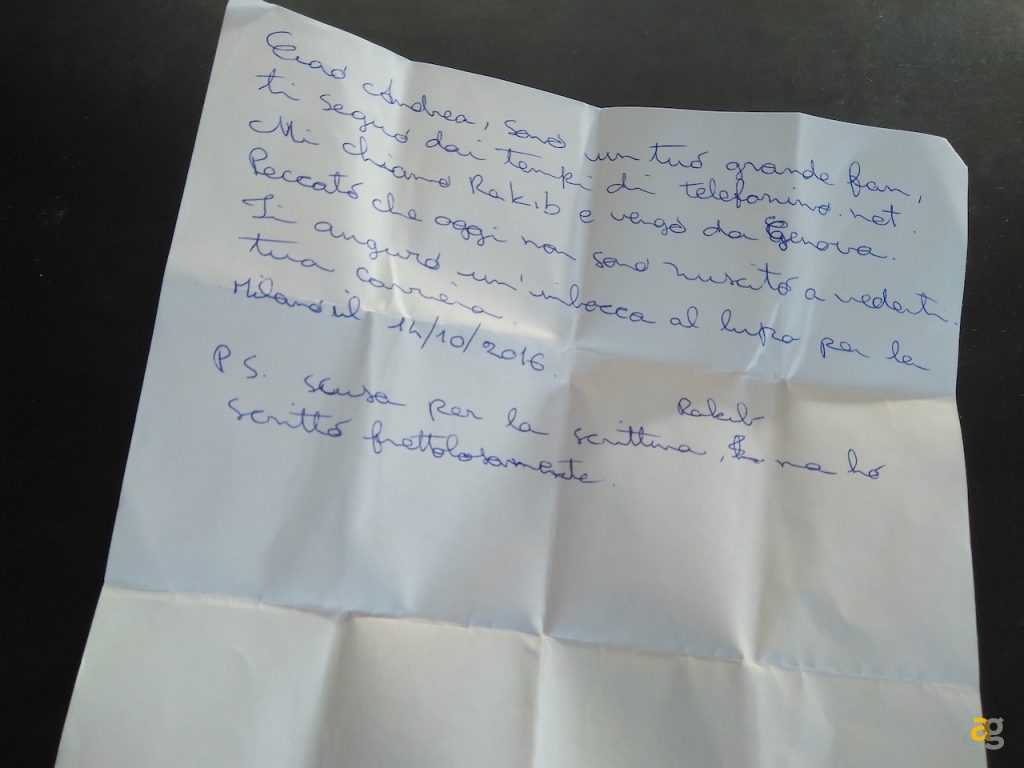 Ciao Andrea, sono un tuo grande fan,
ti seguo dai tempi di telefonino.net.
Mi chiamo Rakib e vengo da Genova.
Peccato che oggi non sono riuscito a vederti.
Ti auguro un'inbocca al lupo per la
tua carriera.
Milano il 14/10/2016.
Rakib
PS. scusa per la scrittura, ma ho
scritto frettolosamente.
ag